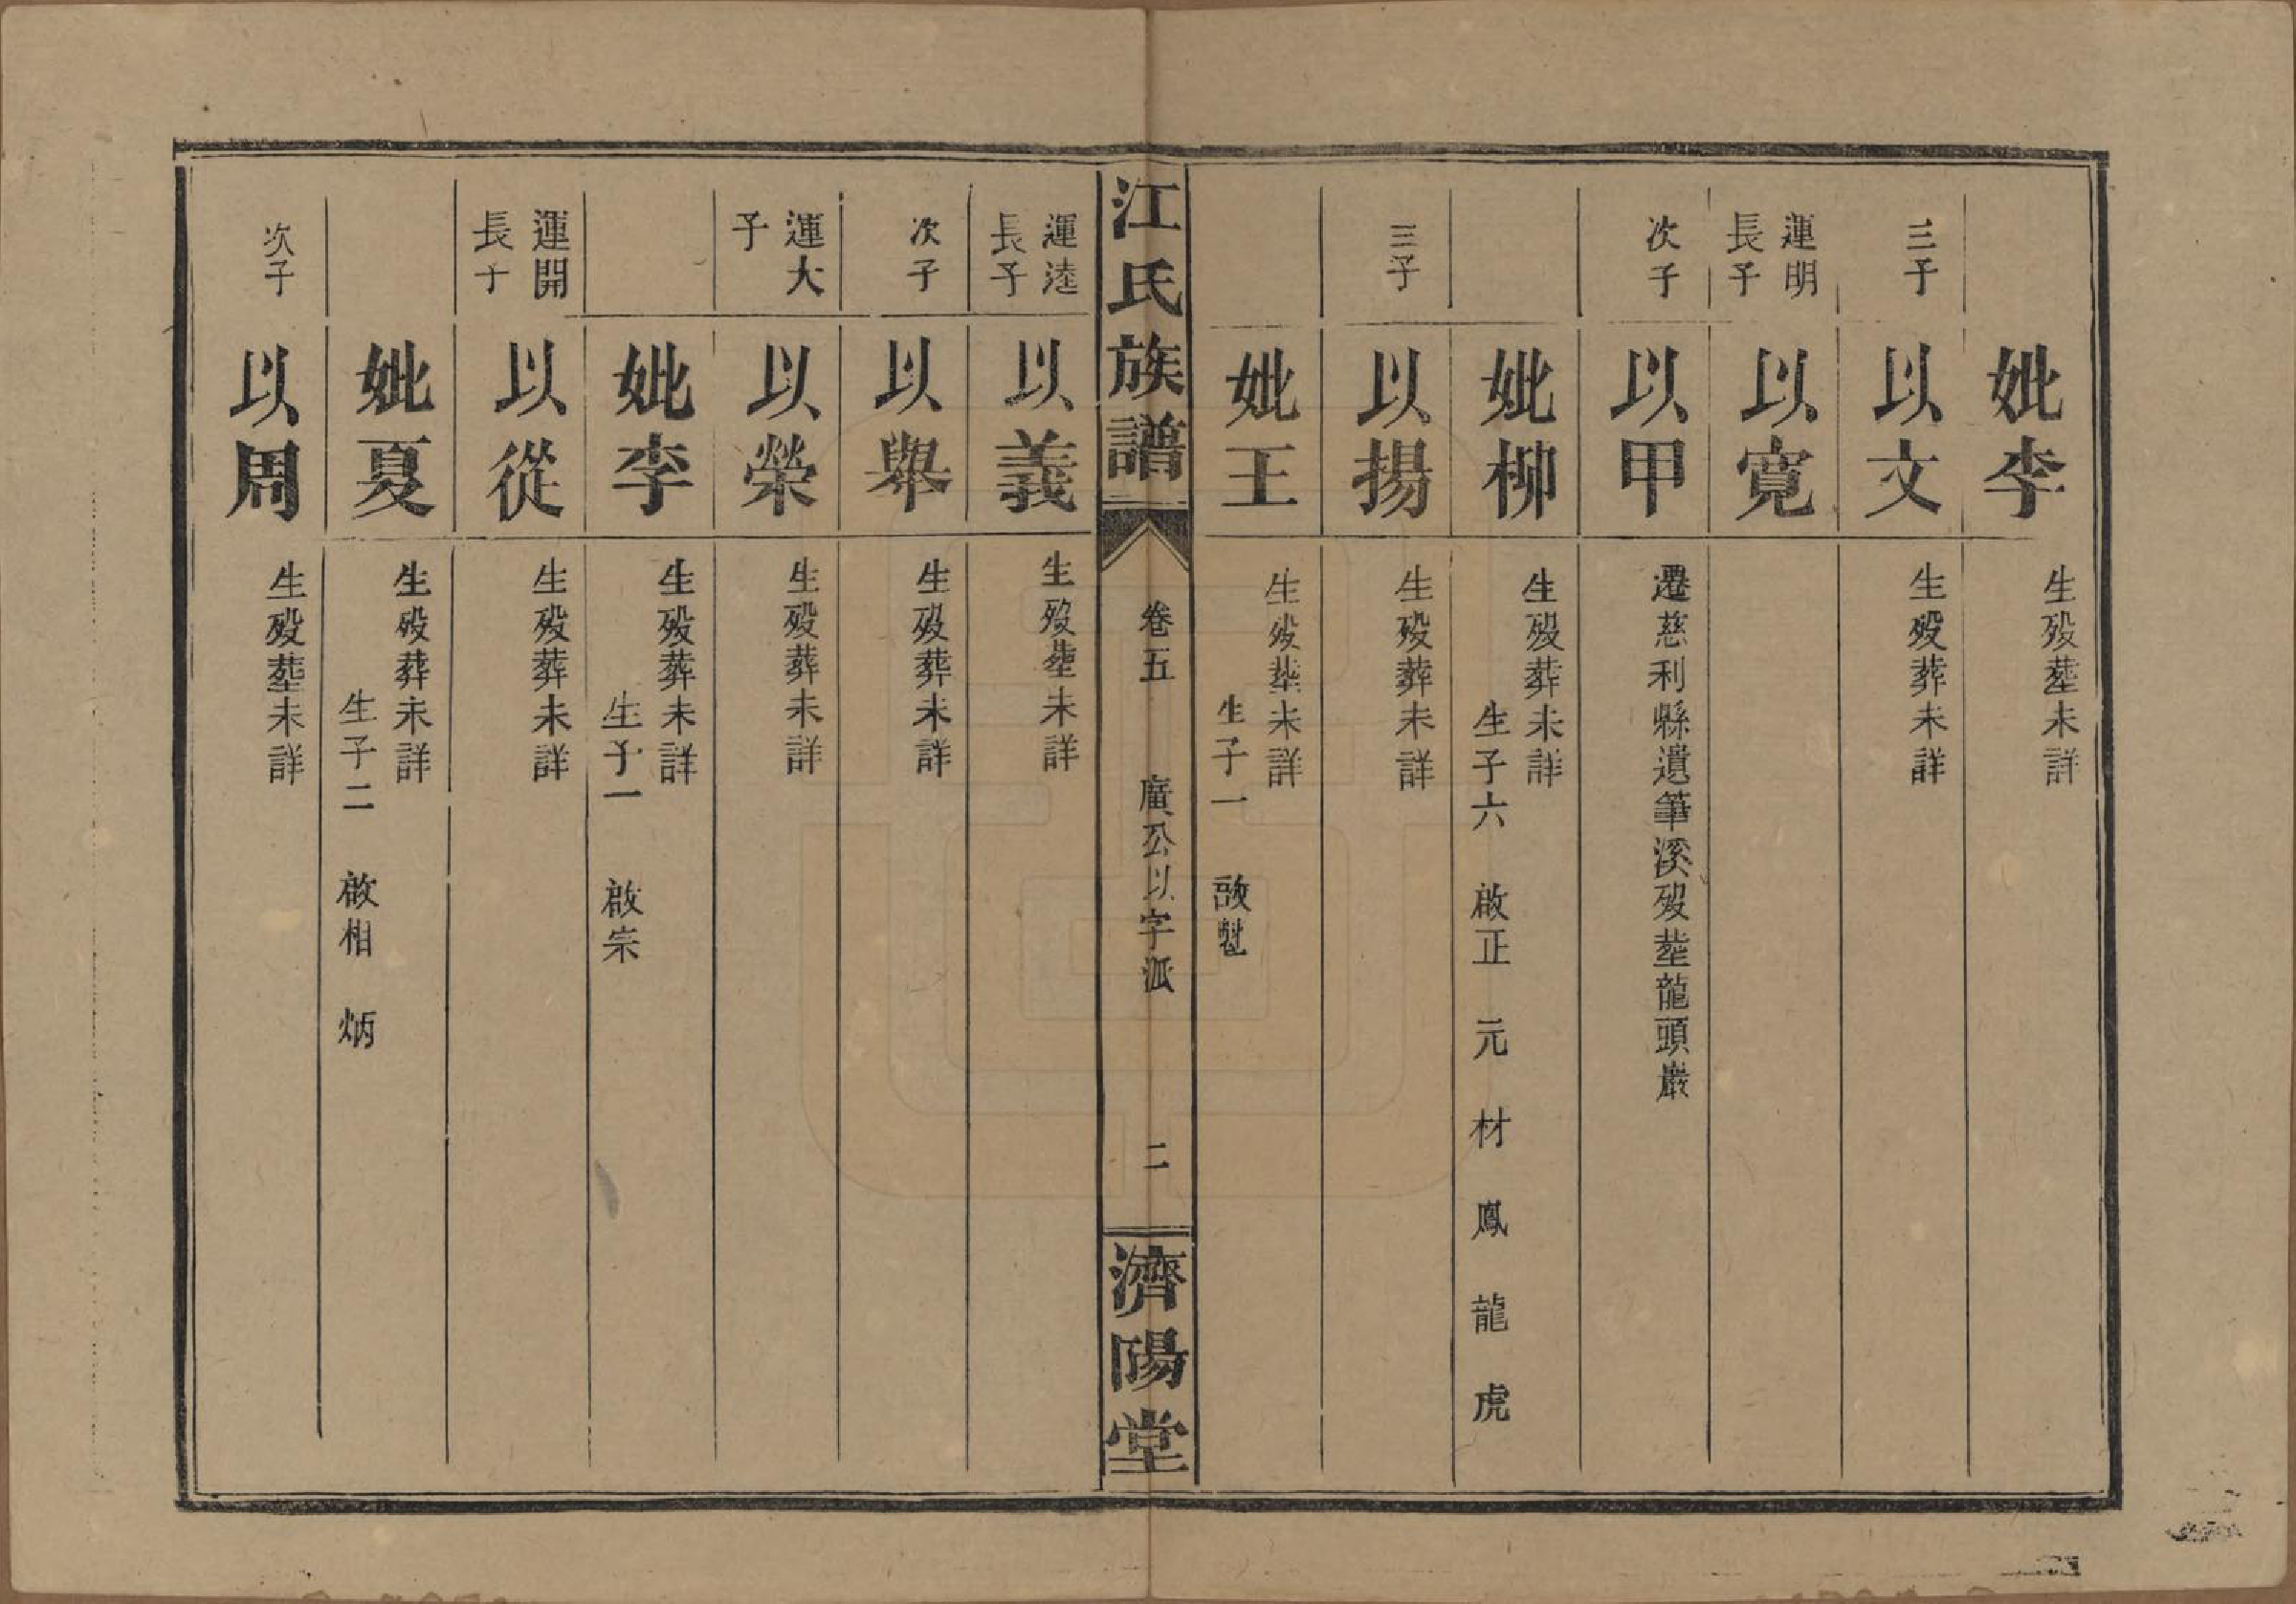 妣李
生歿塟未詳
三子
以文
生歿葬未詳
運明
長子
以寬
次子
以甲
遷慈利縣遺筆溪歿塟龍頭巖
妣柳
生歿葬未詳
生子六 啟正 元 材 鳳 龍 虎
三子
以揚
生歿葬未詳
妣王
生歿塟未詳
生子一
江氏族譜
卷五 廣公以字派 二
濟陽堂
運逵
長子
以義
生歿塟未詳
次子
以舉
生歿葬未詳
運大
子
以榮
生歿葬未詳
妣李
生歿葬未詳
生子一 啟宗
運開
長子
以從
生歿葬未詳
妣夏
生歿葬未詳
生子二 啟相 炳
次子
以周
生歿塟未詳